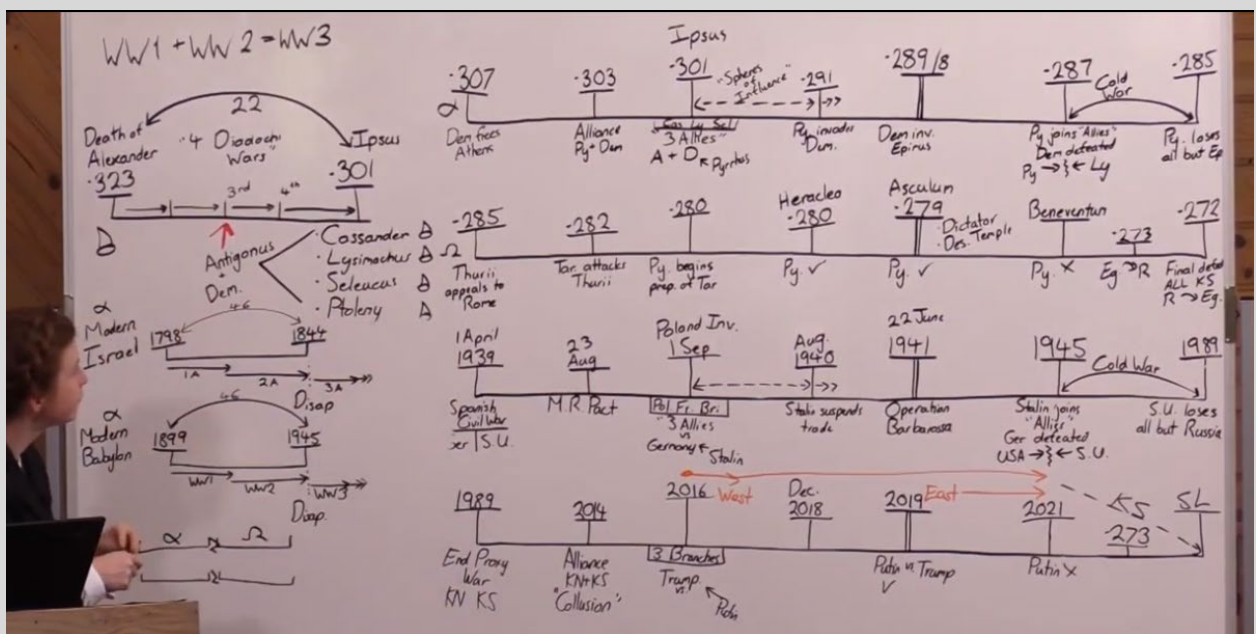 WW1 + WW2 = WW3
22
Death of
Alexander
"4 Diadochi
Wars"
Ipsus
-323
3rd
4th
-301
Antigonus
+
Dem.
· Cassander
· Lysimachus
· Seleucus
· Ptolemy
α
Modern
Israel
46
1798
1844
1A
2A
3A
Disap
α
Modern
Babylon
46
1899
1945
WW1
WW2
WW3
Disap.
α
Ω
Ipsus
-307
-303
-301
"Spheres
of
Influence"
-291
-289/8
-287
Cold
War
-285
α
Dem frees
Athens
Alliance
Py + Dem
Cas Ly Sel
"3 Allies"
A + D
Pyrrhos
Py invades
Dem.
Dem inv.
Epirus
Py joins "Allies"
Dem defeated
Py → ← Ly
Py. loses
all but Ep
Heraclea
Asculum
Beneventun
-285
-282
-280
-280
-279
· Dictator
· Des. Temple
-273
-272
Ω
Thurii
appeals to
Rome
Tar. attacks
Thurii
Py. begins
prep. of Tar
Py. ✓
Py. ✓
Py. X
Eg → R
Final defeat
ALL KS
R → Eg.
1 April
1939
23
Aug
Poland Inv.
1 Sep
Aug.
1940
22 June
1941
1945
Cold War
1989
Spanish
Civil War
S.U.
M.R. Pact
Pol. Fr. Bri.
"3 Allies
vs
Germany ← Stalin
Stalin suspends
trade
Operation
Barbarossa
Stalin joins
"Allies"
Ger defeated
USA → ← S.U.
S.U. loses
all but Russia
1989
2014
2016
West
Dec.
2018
2019
East
2021
KS
-273
SL
End Proxy
War
KN KS
Alliance
KN+KS
"Collusion"
3 Branches
Trump
vs.
Putin
Putin vs. Trump
✓
Putin X